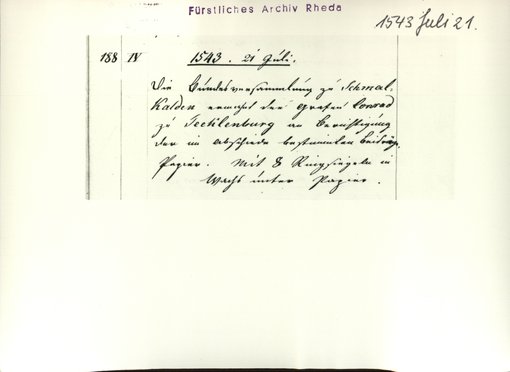 Fürstliches Archiv Rheda
1543 Juli 21.
188 IV 1543. 21 Juli.
Die Bundesversammlung zu Schmal-
Kalden ermahnt den Grafen Conrad
zu Tecklenburg an Berichtigung
der im Abschiede bestimmten Beiträge.
Papier. Mit 8 Ringsiegeln in
Wachs unter Papier.